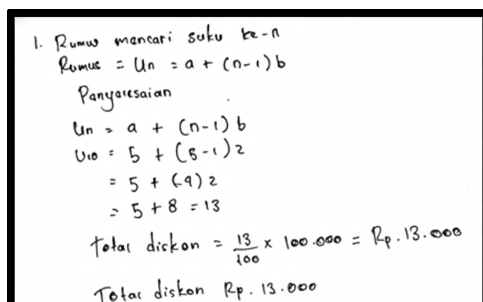 1. Rumus mencari suku ke-n
Rumus = Un = a + (n-1) b
Panyaresaian
Un = a + (n-1) b
U10 = 5 + (5-1) 2
= 5 + (4) 2
= 5 + 8 = 13
total diskon = 13/100 x 100.000 = Rp. 13.000
Total diskon Rp. 13.000